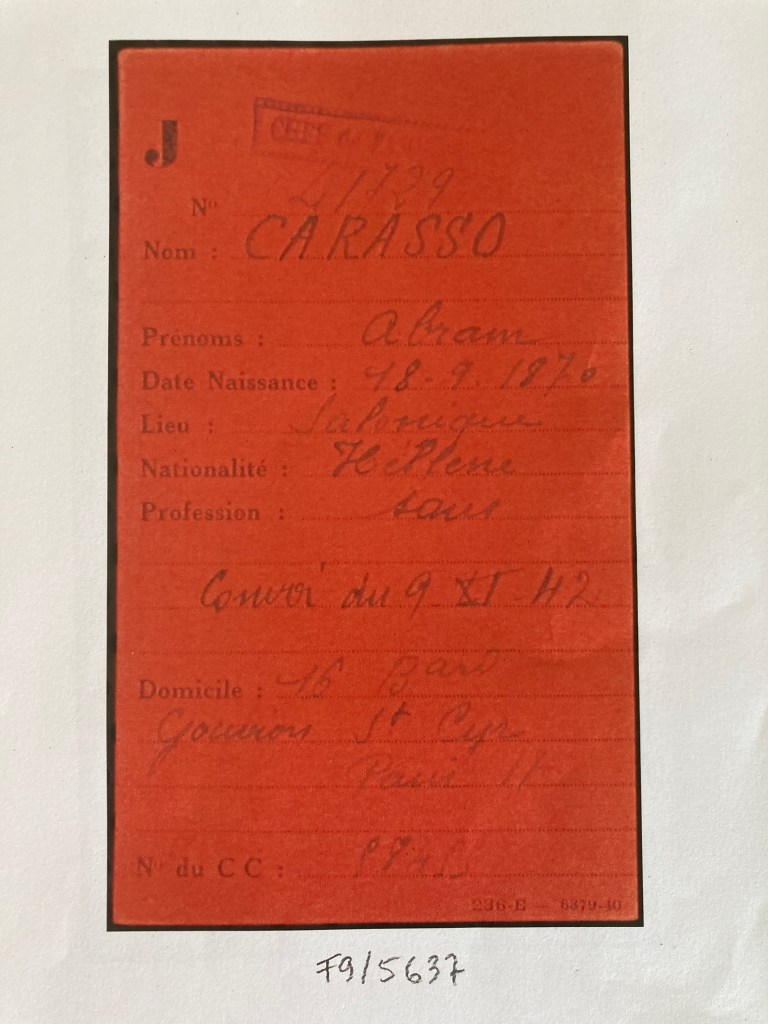 J
CHEF de
Nº 41729
Nom : CARASSO
Prénoms : Abram
Date Naissance : 18-9.1870
Lieu : Salonique
Nationalité : Hellene
Profession : sans
Convoi du 9 XI 42
Domicile : 16 Bard
Gouvion St Cyr
Paris 17
Nº du C C :
236-E — 6379-40
F9/5637